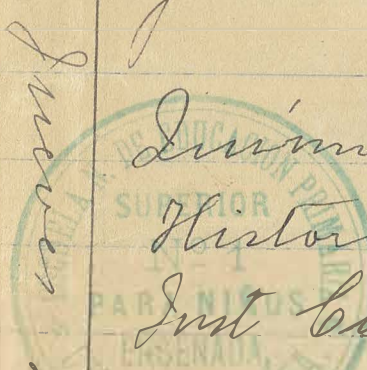 Jueves
Quím
Histor
Inst Ci
ESCUELA N. DE EDUCACIÓN PRIMARIA
SUPERIOR
No. 1
PARA NIÑOS
ENSENADA,